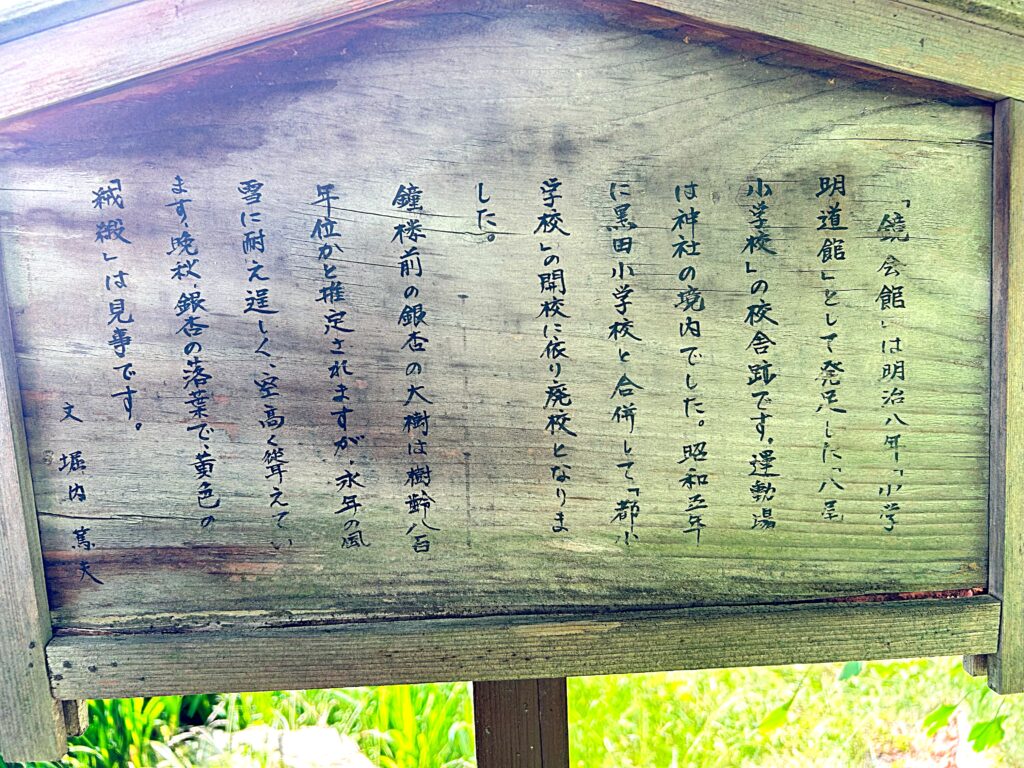 「鏡会館」は明治八年「小学
明道館」として発足した「八尾
小学校」の校舎跡です。運動場
は神社の境内でした。昭和五年
に黒田小学校と合併して「都小
学校」の開校に依り廃校となりま
した。
鐘楼前の銀杏の大樹は樹齢八百
年位かと推定されますが、永年の風
雪に耐え逞しく、空高く聳えてい
ます。晩秋、銀杏の落葉で、黄色の
「絨緞」は見事です。
文 堀内 篤夫